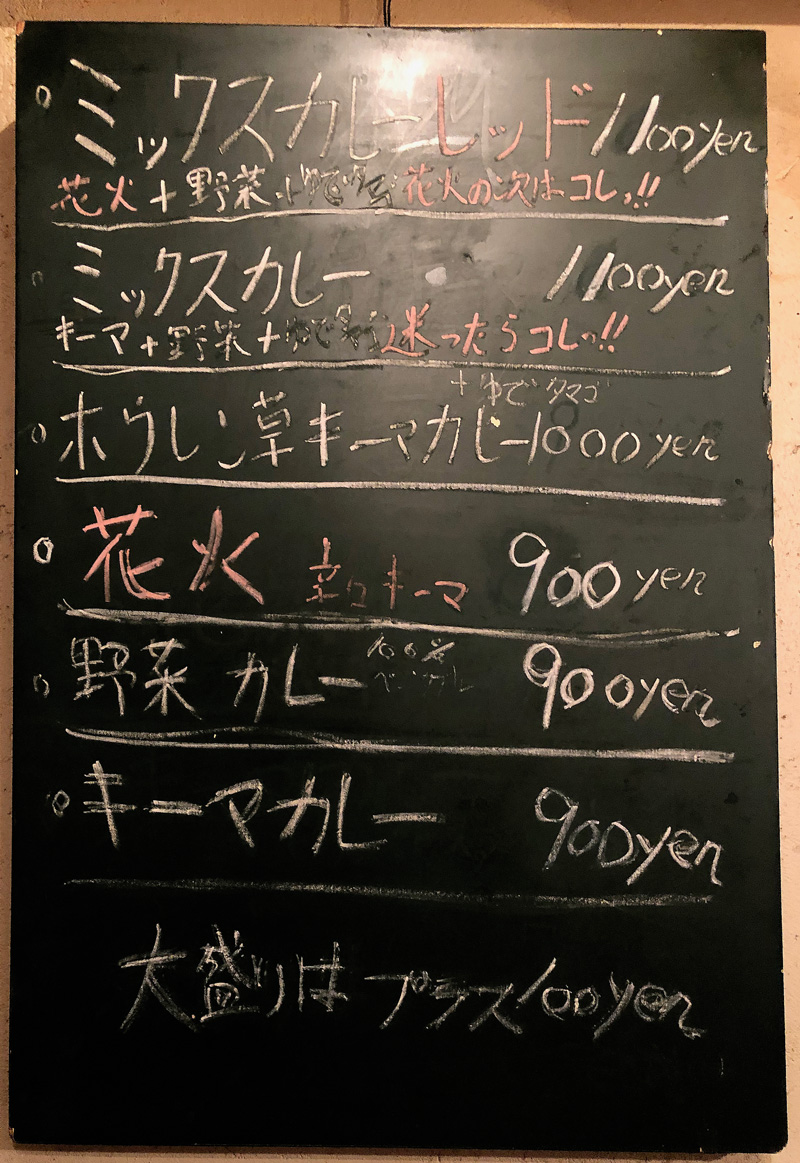 ミックスカレーレッド 1100yen
花火+野菜+ゆでタマゴ 花火の次はコレっ!!
ミックスカレー 1100yen
キーマ+野菜+ゆでタマゴ 迷ったらコレっ!!
+ゆでタマゴ
ホウレン草キーマカレー 1000yen
花火 辛口キーマ 900yen
野菜カレー 100% ベジタブル 900yen
キーマカレー 900yen
大盛りは プラス100yen